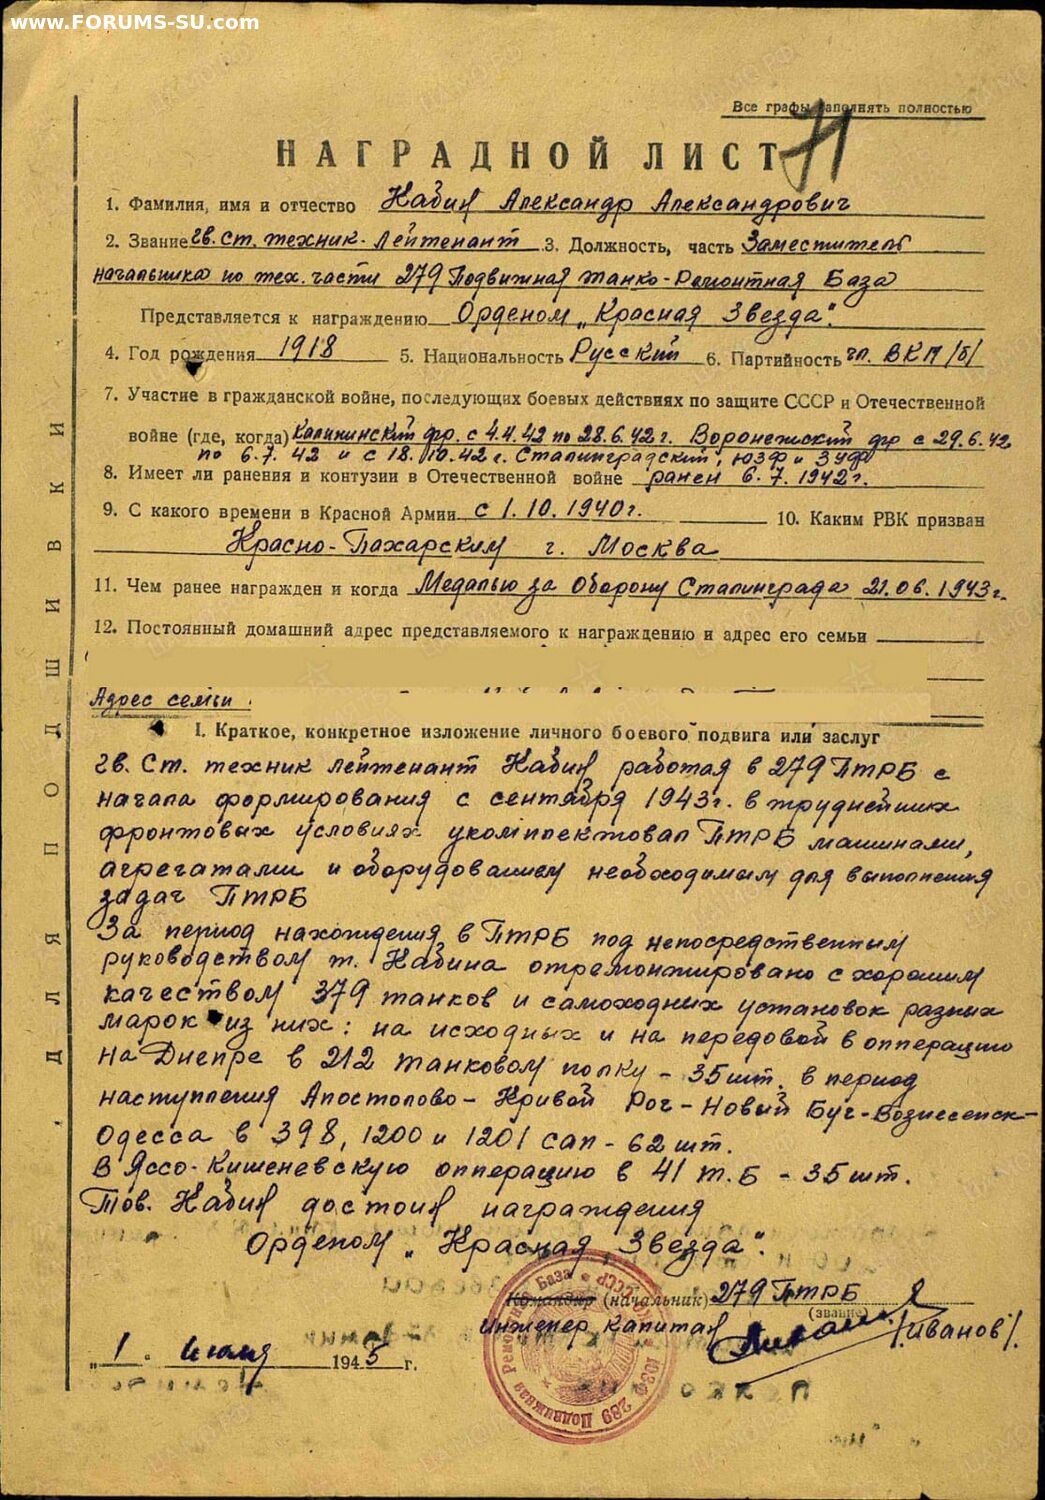 www.FORUMS-SU.com
Все графы заполнять полностью
71
НАГРАДНОЙ ЛИСТ
1. Фамилия, имя и отчество Кабин Александр Александрович
2. Звание гв. ст. техник-лейтенант 3. Должность, часть Заместитель
начальника по тех. части 279 Подвижная танко-Ремонтная База
Представляется к награждению Орденом „Красная Звезда".
4. Год рождения 1918 5. Национальность Русский 6. Партийность чл. ВКП/б/
7. Участие в гражданской войне, последующих боевых действиях по защите СССР и Отечественной
войне (где, когда) Калининский фр. с 4.4.42 по 28.6.42г. Воронежский фр с 29.6.42
по 6.7.42 и с 18.10.42г. Сталинградский, ЮЗФ и 3 УФ
8. Имеет ли ранения и контузии в Отечественной войне ранен 6.7.1942г.
9. С какого времени в Красной Армии с 1.10.1940г. 10. Каким РВК призван
Красно-Пахарским г. Москва
11. Чем ранее награжден и когда Медалью за Оборону Сталинграда 21.06.1943г.
12. Постоянный домашний адрес представляемого к награждению и адрес его семьи
Адрес семьи
I. Краткое, конкретное изложение личного боевого подвига или заслуг
гв. Ст. техник лейтенант Кабин работая в 279 ПТРБ с
начала формирования с сентября 1943г. в труднейших
фронтовых условиях укомплектовал ПТРБ машинами,
агрегатами и оборудованием необходимым для выполнения
задач ПТРБ
За период нахождения в ПТРБ под непосредственным
руководством т. Кабина отремонтировано с хорошим
качеством 379 танков и самоходных установок разных
марок из них: на исходных и на передовой в опперацию
на Днепре в 212 танковом полку - 35шт. в период
наступления Апостолово-Кривой Рог-Новый Буг-Вознесенск-
Одесса в 398, 1200 и 1201 сап - 62шт.
В Яссо-Кишеневскую опперацию в 41 т.б - 35шт.
Тов. Кабин достоин награждения
Орденом „Красная Звезда".
Командир (начальник) 279 ПТРБ
(звание)
инженер капитан /Иванов/.
„1" июля 1945 г.
ДЛЯ ПОДШИВКИ
289 Подвижная Ремонтная База